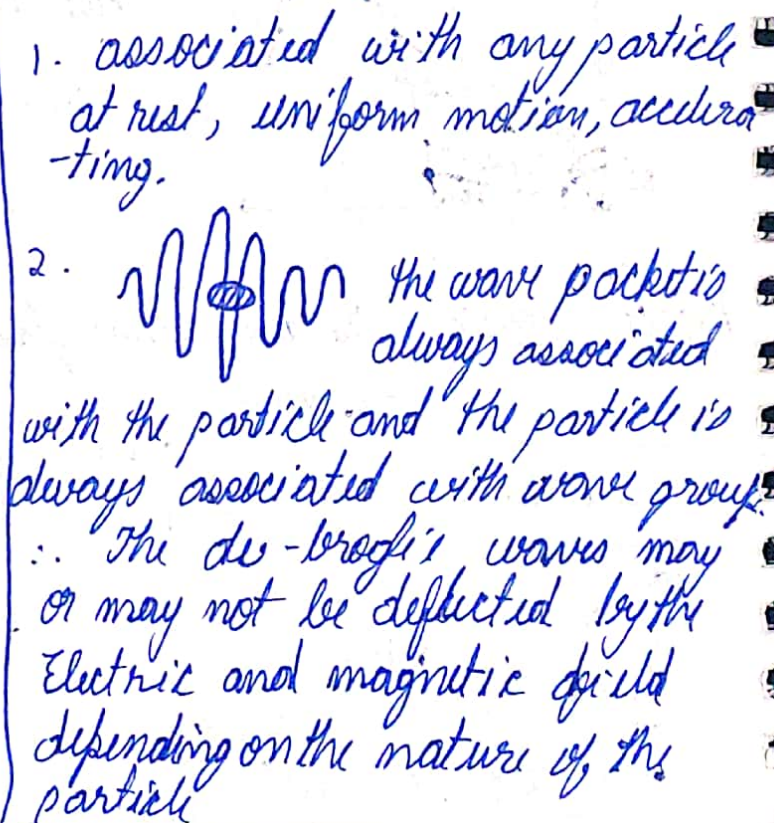 1. associated with any particle
at rest, uniform motion, accelera
-ting.
2. the wave packet is
always associated
with the particle and the particle is
always associated with wave group.
∴ The de-broglie waves may
or may not be deflected by the
Electric and magnetic field
depending on the nature of the
particle